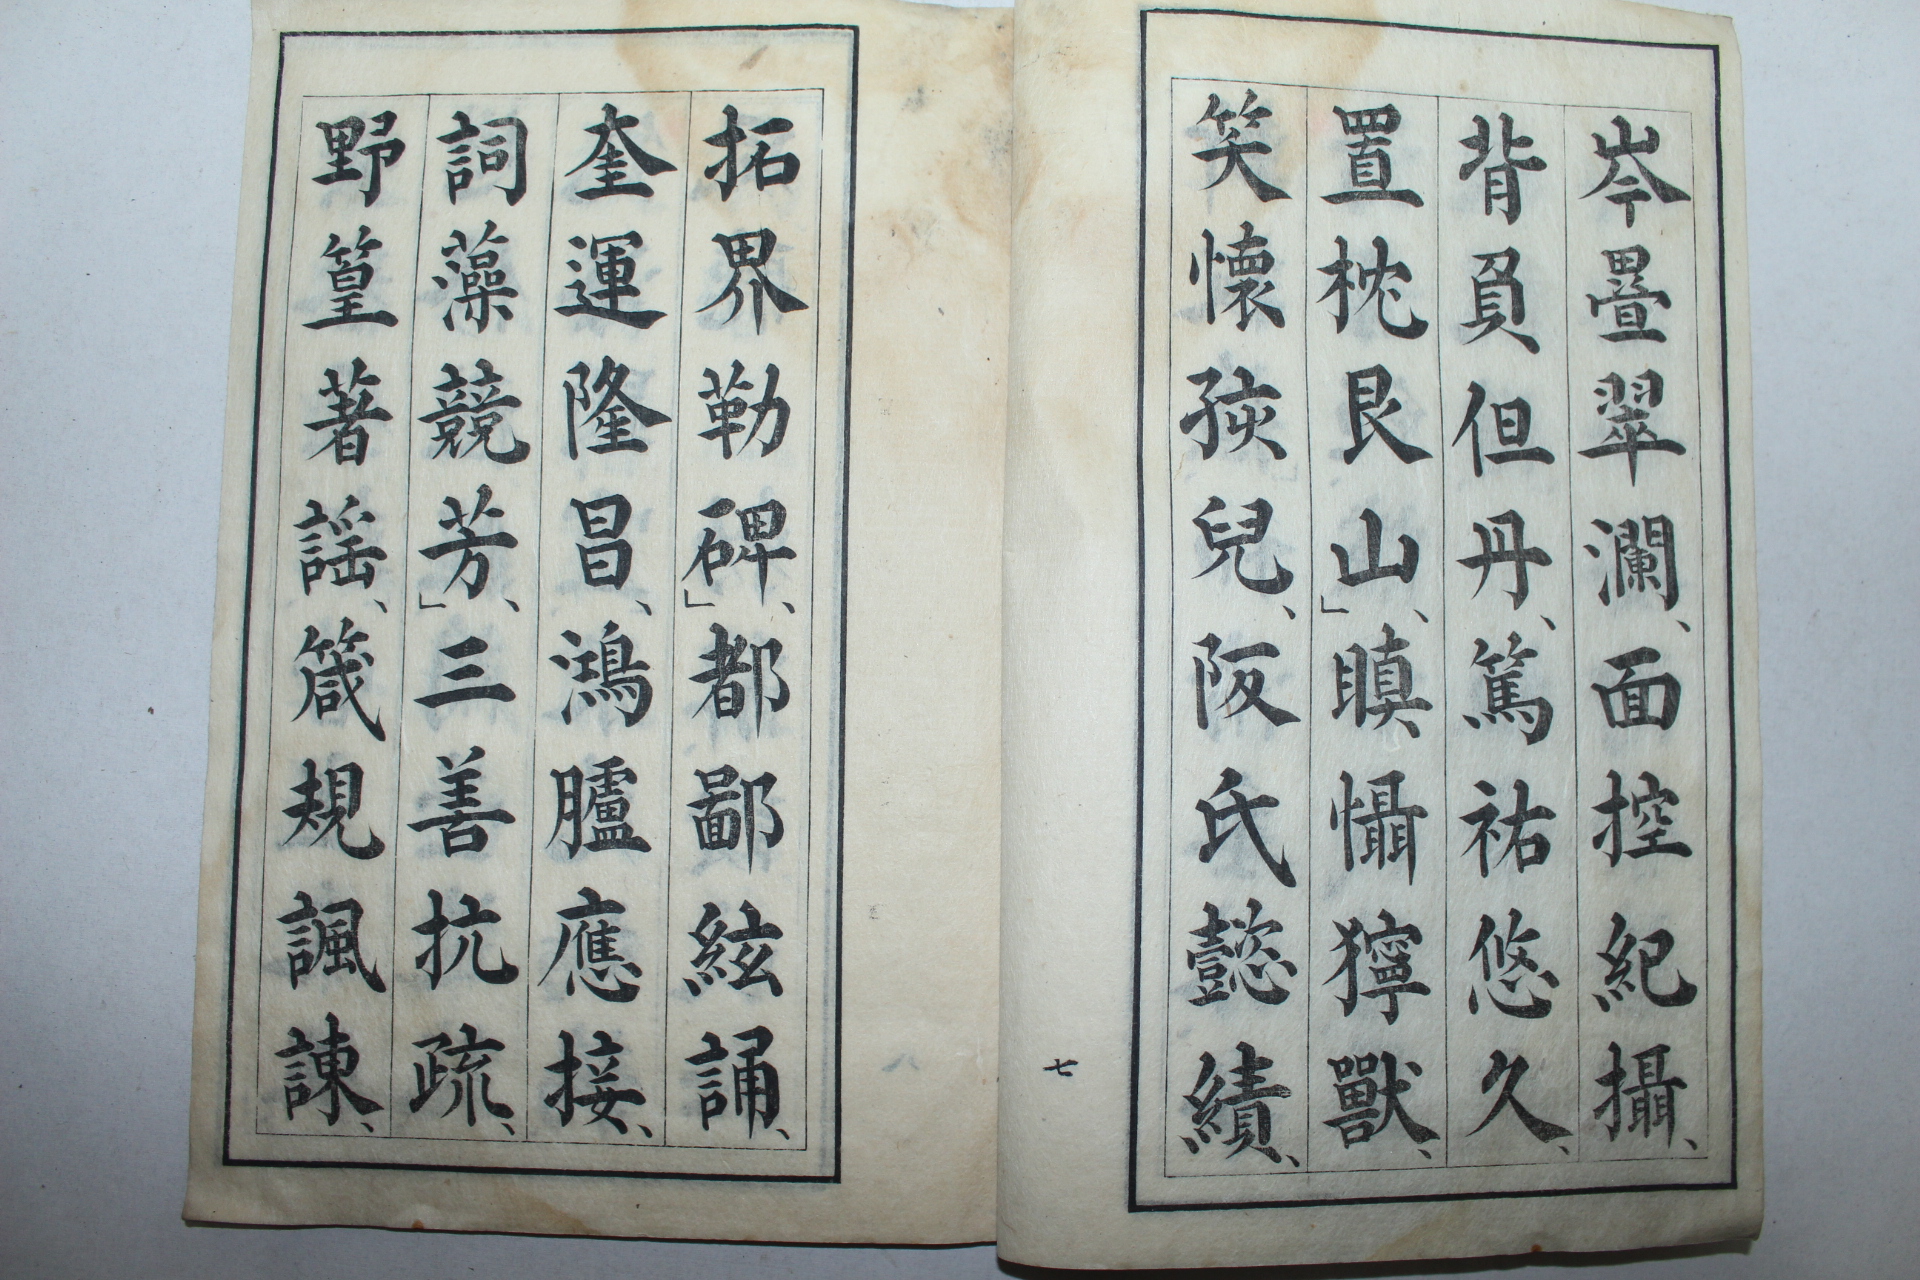 岑疊翠瀾、面控紀攝、
背負但丹、篤祐悠久、
置枕艮山」、瞋懾獰獸、
笑懷孩兒、阪氏懿績、
七
拓界勒碑」、都鄙絃誦、
奎運隆昌、鴻臚應接、
詞藻競芳」、三善抗疏、
野篁著謠、箴規諷諫、